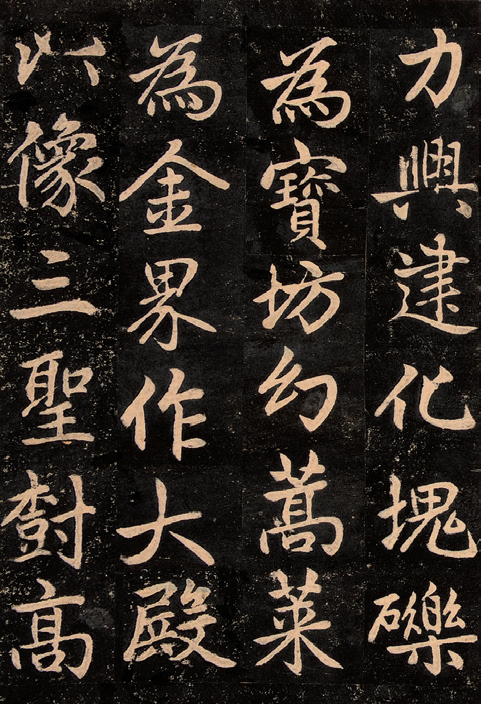 力興建化塊礫
為寶坊幻蒿萊
為金界作大殿
以像三聖樹高